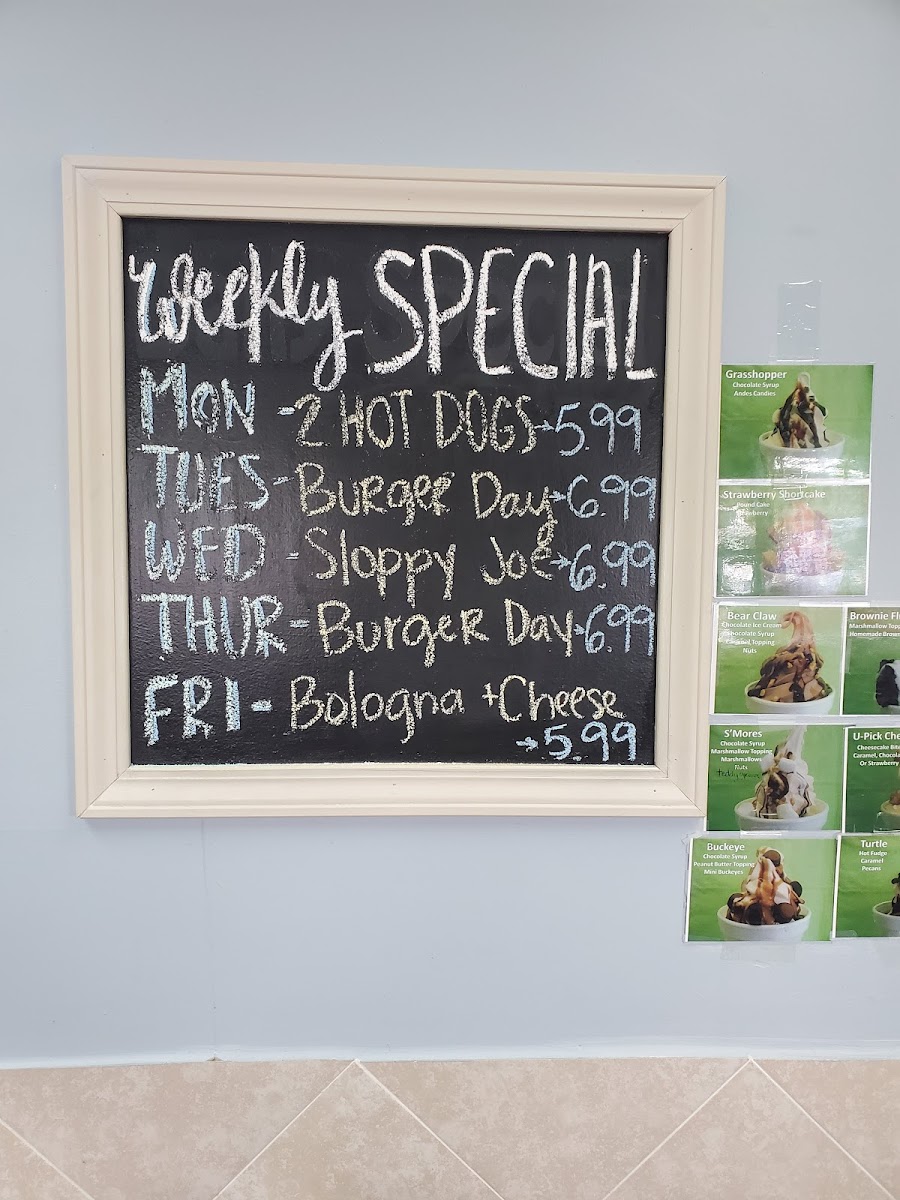 Weekly SPECIAL
MON - 2 HOT DOGS → 5.99
TUES - Burger Day → 6.99
WED - Sloppy Joe → 6.99
THUR - Burger Day → 6.99
FRI - Bologna + Cheese
→ 5.99
Grasshopper
Chocolate Syrup
Andes Candies
Strawberry Shortcake
Pound Cake
Strawberry
Bear Claw
Chocolate Ice Cream
Chocolate Syrup
Caramel Topping
Nuts
Brownie Fl
Marshmallow Top
Homemade Brow
S'Mores
Chocolate Syrup
Marshmallow Topping
Marshmallows
Nuts
U-Pick Che
Cheesecake Bit
Caramel, Chocola
Or Strawberry
Buckeye
Chocolate Syrup
Peanut Butter Topping
Mini Buckeyes
Turtle
Hot Fudge
Caramel
Pecans